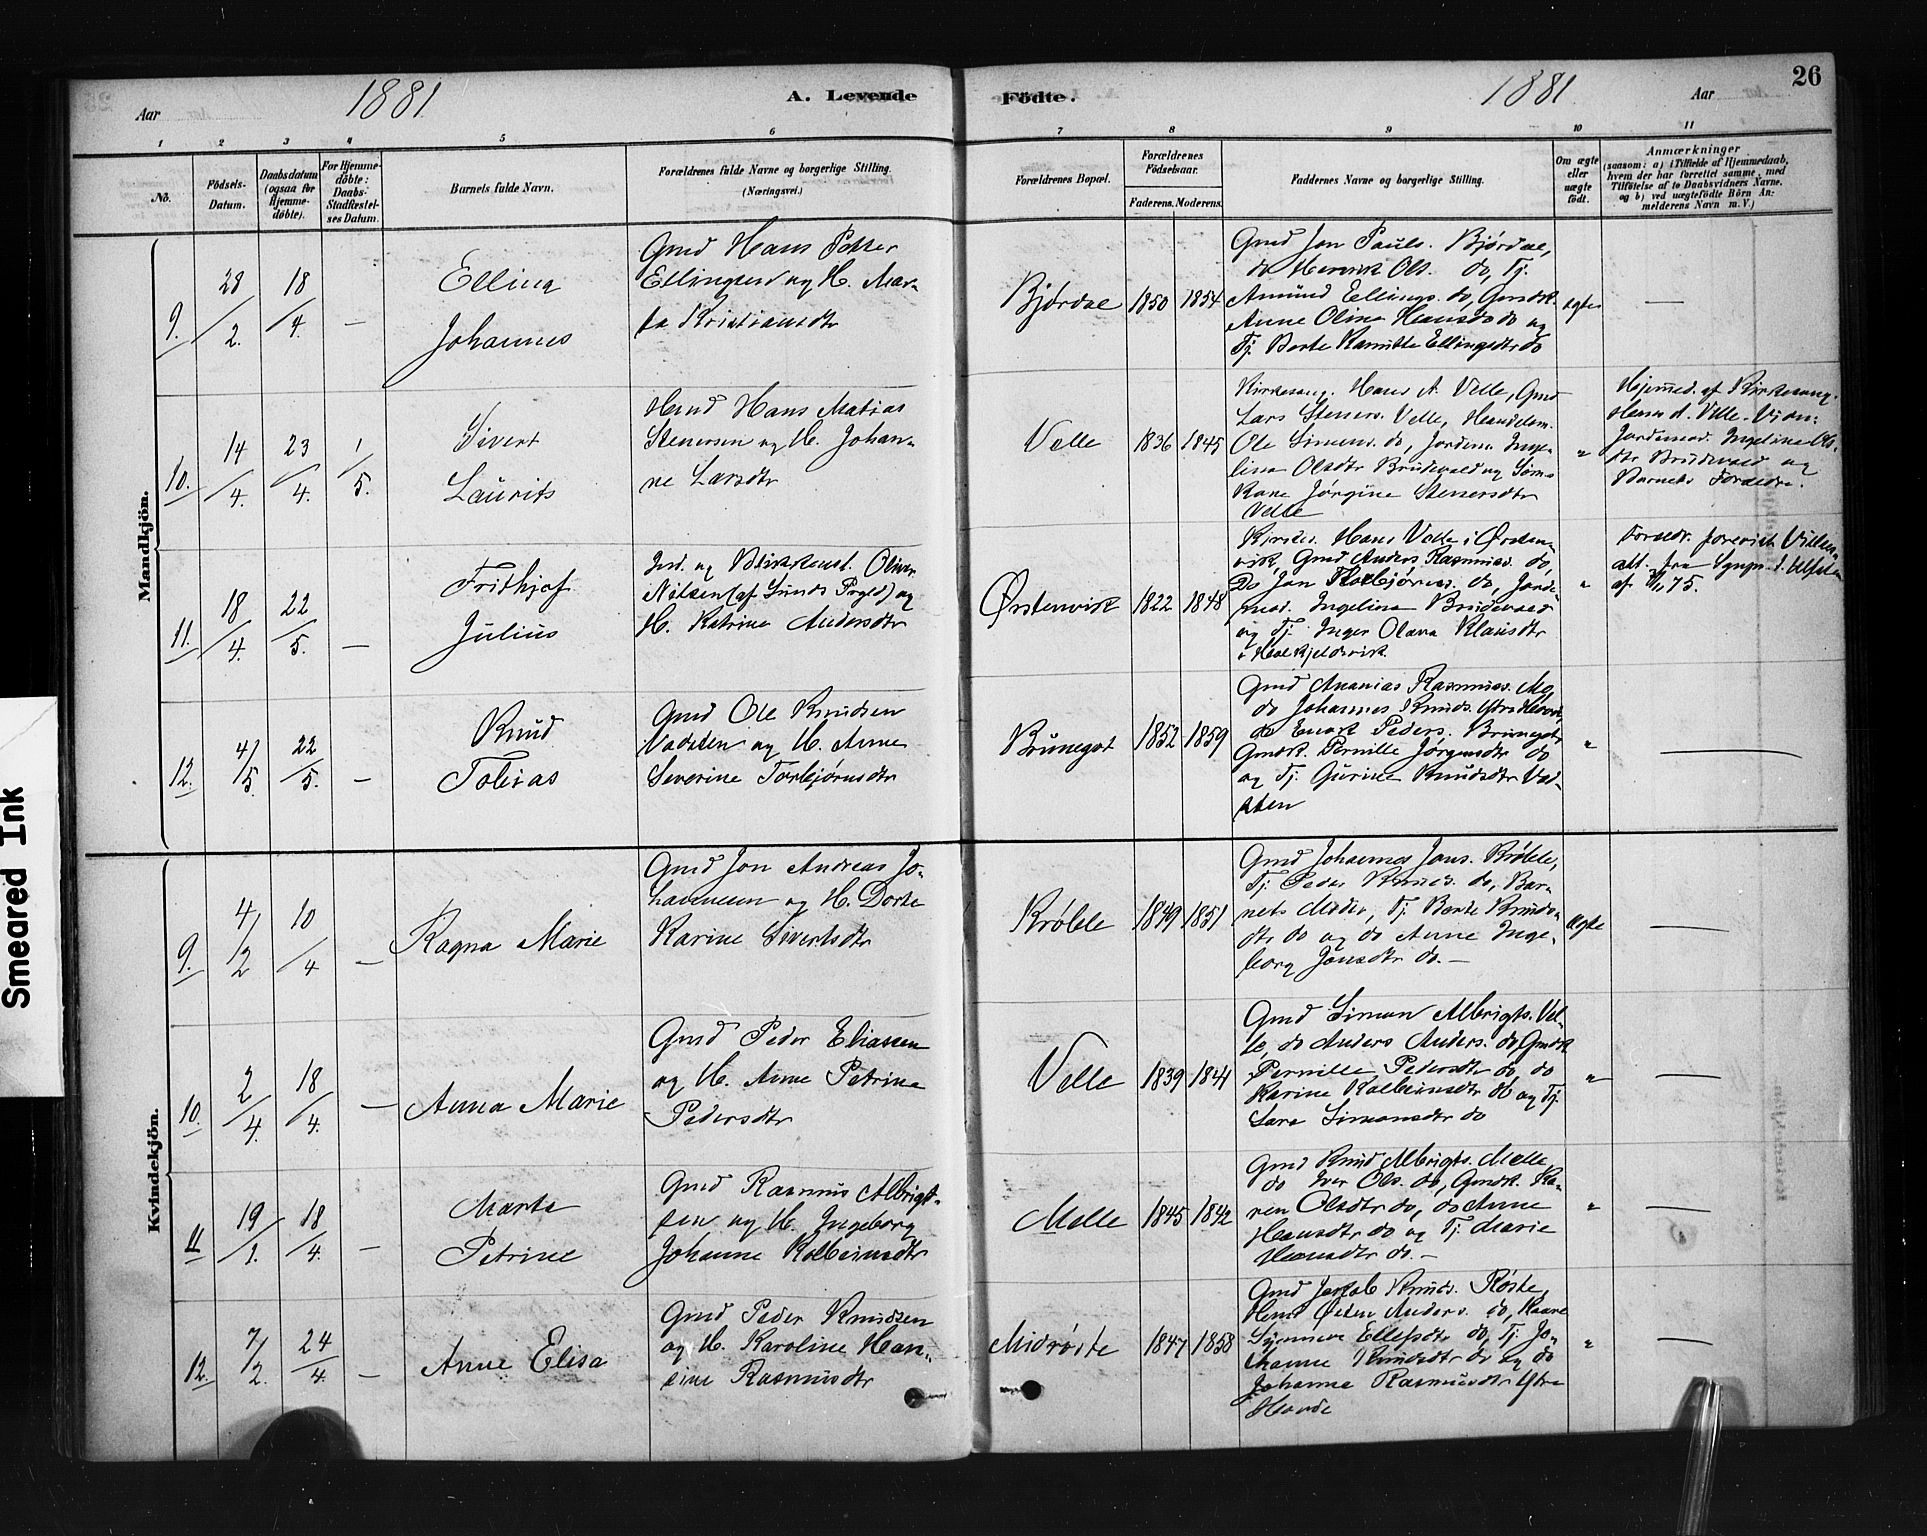 26
1881
1881
A. Levende
Födte.
Aar
Aar
1 2 3 4 5 6 7 8 9 10 11
No.
Födsels-Datum.
Daabsdatum (ogsaa for Hjemme-döbte).
For Hjemme-döbte: Daabs-Stadfæstel-ses Datum.
Barnets fulde Navn.
Forældrenes fulde Navne og borgerlige Stilling.
(Næringsvei.)
Forældrenes Bopæl.
Forældrenes Födselsaar.
Faderens. Moderens.
Faddernes Navne og borgerlige Stilling.
Om ægte eller uægte födt.
Anmærkninger
(saasom: a) i Tilfælde af Hjemmedaab, hvem der har forrettet samme, med Tilföielse af to Daabsvidners Navne, og b) ved uægtefödte Börn An-melderens Navn m. V.)
Mandkjön.
9. 28/2. 18/4. —
Ellina
Johannes
Gmd Hans Petter
Ellingsen og H. Mar-
ta Kristiansdtr
Bjørdal 1850 1854
Gmd Jon Pauls. Bjørdal,
do Henrik Ols. do, Tj.
Amund Ellings. do, Gmdk.
Anne Oline Hansd do og
Tj. Berte Ellingsdtr do
ægte —
10. 14/4. 23/4. 1/5.
Sivert
Laurits
Hmd Hans Matias
Stenersen og H. Johan-
ne Larsdtr
Velle 1836 1845
Kirkesang. Hans A. Velle, Gmd
Lars Steners. Velle, Handelsm.
Ole Simens. do, Jordem. Inge-
lina Olsdtr Brudevold og
Kone Jørgine Stenersdtr
Velle
"
Hjemmed. af Kirkesang.
Hans A. Velle. Vidn:
Jordemod. Ingelina Ols-
dtr Brudevold og
Barnets Forældre.
11. 18/4. 22/5. —
Frithjof
Julius
Ind. og Blikkensl. Oliver
Nilsen (af Sunds Prgld) og
H. Katrine Andersdtr
Ørstenvik 1822 1848
Kirkes. Hans Velle i Ørsten-
vik, Gmd Anders Rasmuss. do,
Do Jon Torbjørns. do, Jorde-
mod. Ingelina Brudevold
og Tj. Inger Olava Klausdtr
"
af 75.
12. 4/5. 22/5. —
Knud
Tobias
Gmd Ole Knudsen
Vadsten og H. Anne
Severine Torbjørnsdtr
Brünegot 1852 1859
Gmd Ananias Rasmuss. Mo,
do Johannes Knuds. Ytre Hovde,
do Enok Peders. Brunegot,
Gmdk. Pernille Jørgensdtr do
og Tj. Gurine Knudsdtr Vad-
sten
" —
Kvindekjön.
9. 4/2 10/4 —
Ragna Marie
Gmd Jon Andreas Jo-
hannesen og H. Dorte
Karine Sivertsdtr
Krøble 1849 1851
Gmd Johannes Jons. Krøble,
Tj. Peder Knuds. do, Bar-
nets Moder, Tj. Berte Knuds-
dtr do og do Anne Inge-
borg Jonsdtr do. —
ægte —
10. 2/4. 18/4. —
Anna Marie
Gmd Peder Eliassen
og H. Anne Petrine
Pedersdtr
Velle 1839 1844
Gmd Simon Albrigts. Vel-
le, do Anders Anders. do, Gmdk
Pernille Pedersdtr do, do
Karine Kolbeinsdtr do og Tj.
Sara Simonsdtr do
" —
11 19/1. 18/4. —
Marta
Petrine
Gmd Rasmus Albrigt-
sen og H. Ingeborg
Johanne Kolbeinsdtr
Melle 1845 1842
Gmd Knud Albrigts. Melle,
do Iver Ols. do, Gmdk. Ka-
ren Olsdtr do, do Anne
Hansdtr do og Tj. Marie
Hansdtr do. —
" —
12. 7/2. 24/4. —
Anne Elisa
Gmd Peder Knudsen
og H. Karoline Han-
sine Rasmusdtr
Midrøste 1847 1858
Gmd Jakob Knuds. Røste,
Hmd Østen Anders. do, Kaare
Synneve Ellefsdtr do, Tj. Jo-
hanne Knudsdtr do og do
Johanna Rasmusdtr Ytre
Hovde
" —
Smeared Ink